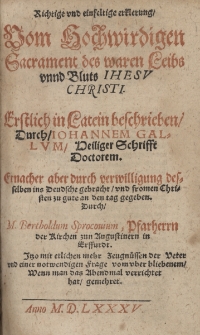 Richtige vnd einfeltige erklerung/
Vom Hochwirdigen
Sacrament des waren Leibs
vnnd Bluts IHESV
CHRISTI.
Erstlich in Latein beschrieben/
Durch/ IOHANNEM GAL-
LVM/ Heiliger Schrifft
Doctorem.
Ernacher aber durch verwilligung des-
selben ins Deudsche gebracht/ vnd fromen Chri-
sten zu gute an den tag gegeben.
Durch/
M. Bartholdum Sprocouium, Pfarherrn
der Kirchen zun Augustinern in
Erffurdt.
Itzo mit etlichen mehr Zeugnüssen der Veter
vnd einer notwendigen Frage vom vbrbliebenem/
Wenn man das Abendmal verrichtet
hat/ gemehret.
Anno M. D. LXXXV.